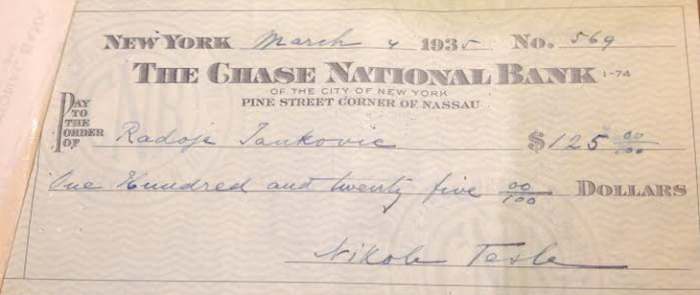 NEW YORK March 4 1935 No. 569
THE CHASE NATIONAL BANK 1-74
OF THE CITY OF NEW YORK
PINE STREET CORNER OF NASSAU
PAY TO THE ORDER OF Radoje Jankovic $125 00/100
One Hundred and twenty five 00/100 DOLLARS
Nikola Tesla